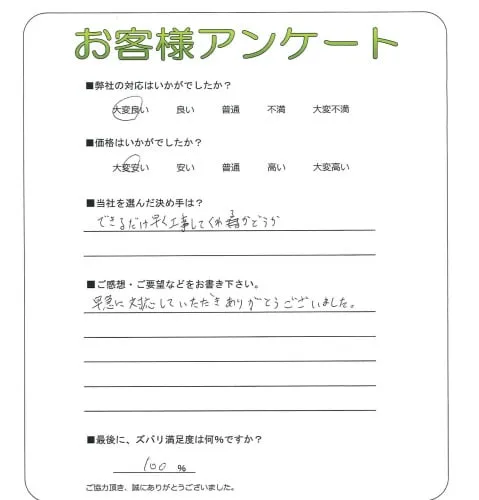 お客様アンケート
■弊社の対応はいかがでしたか？
大変良い 良い 普通 不満 大変不満
■価格はいかがでしたか？
大変安い 安い 普通 高い 大変高い
■当社を選んだ決め手は？
できるだけ早く工事してくれるかどうか
■ご感想・ご要望などをお書き下さい。
早急に対応していただきありがとうございました。
■最後に、ズバリ満足度は何%ですか？
100 %
ご協力頂き、誠にありがとうございました。